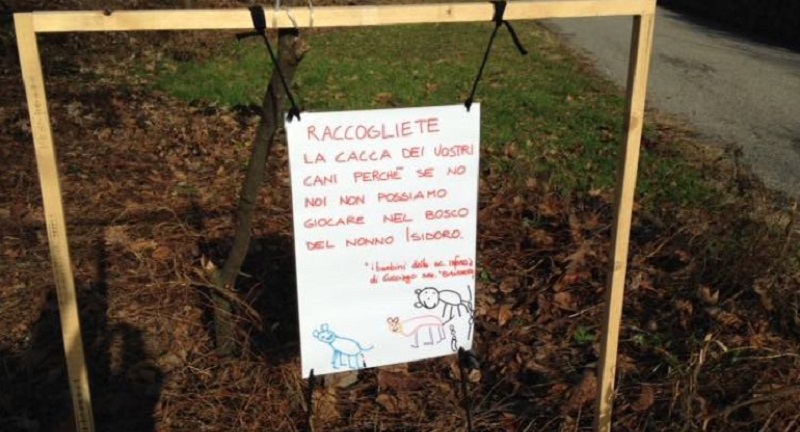 RACCOGLIETE
LA CACCA DEI VOSTRI
CANI PERCHÈ SE NO
NOI NON POSSIAMO
GIOCARE NEL BOSCO
DEL NONNO ISIDORO.
"i bambini della sc.
di sez.